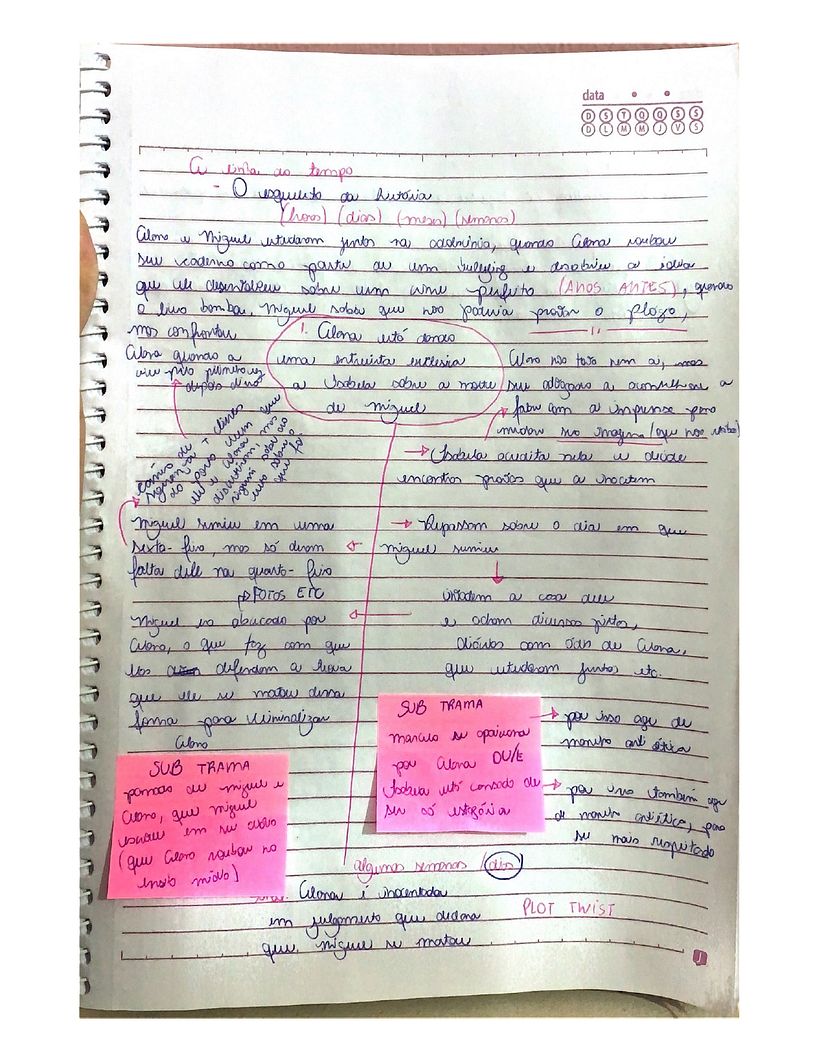 data
D S T Q Q S S
D L M M J V S
A linha do tempo
- O esqueleto da história
(horas) (dias) (meses) (semanas)
Alana e Miguel estudaram juntos na academia, quando Alana roubou
seu caderno como parte de um bullying e descobriu a ideia
que ele desenvolveu sobre um crime perfeito (ANOS ANTES), quando
o livro bomba, Miguel sabia que não poderia provar o plágio,
mas confrontou
Alana quando a
viu pela primeira vez
depois disso
1. Alana está dando
uma entrevista exclusiva
a Isabela sobre a morte
de Miguel
Alana não fala sem a, mas
seu advogado a aconselhou a
falar com a imprensa para
mudar sua imagem (que não
→ Isabela acredita nela e decide
encontrar provas que a inocitem
câmeras de
segurança
ele e Alana
discutiram, mas
ninguém sabe ao
certo sobre o
que foi
Miguel sumiu em uma
sexta-feira, mas só deram
falta dele na quarta-feira
→ Repassam sobre o dia em que
Miguel sumiu
→ FOTOS ETC
Miguel era obcecado por
Alana, o que fez com que
eles defendam a tese
que ele se matou dessa
forma para criminalizar
Alana
invadem a casa dele
e acham diversas pistas,
diários com ódio de Alana,
que estudaram juntos etc.
SUB TRAMA
passado de Miguel e
Alana, que Miguel
escreveu em seu diário
(que Alana roubou no
ensino médio)
SUB TRAMA
Marcelo se apaixona
por Alana OU/E
Isabela está cansada de
ser só estagiária
→ por isso age de
maneira anti ética
→ por isso também age
de maneira antiética, para
ser mais respeitada
algumas semanas / dias
Alana é inocentada
em julgamento que declara
que Miguel se matou
PLOT TWIST